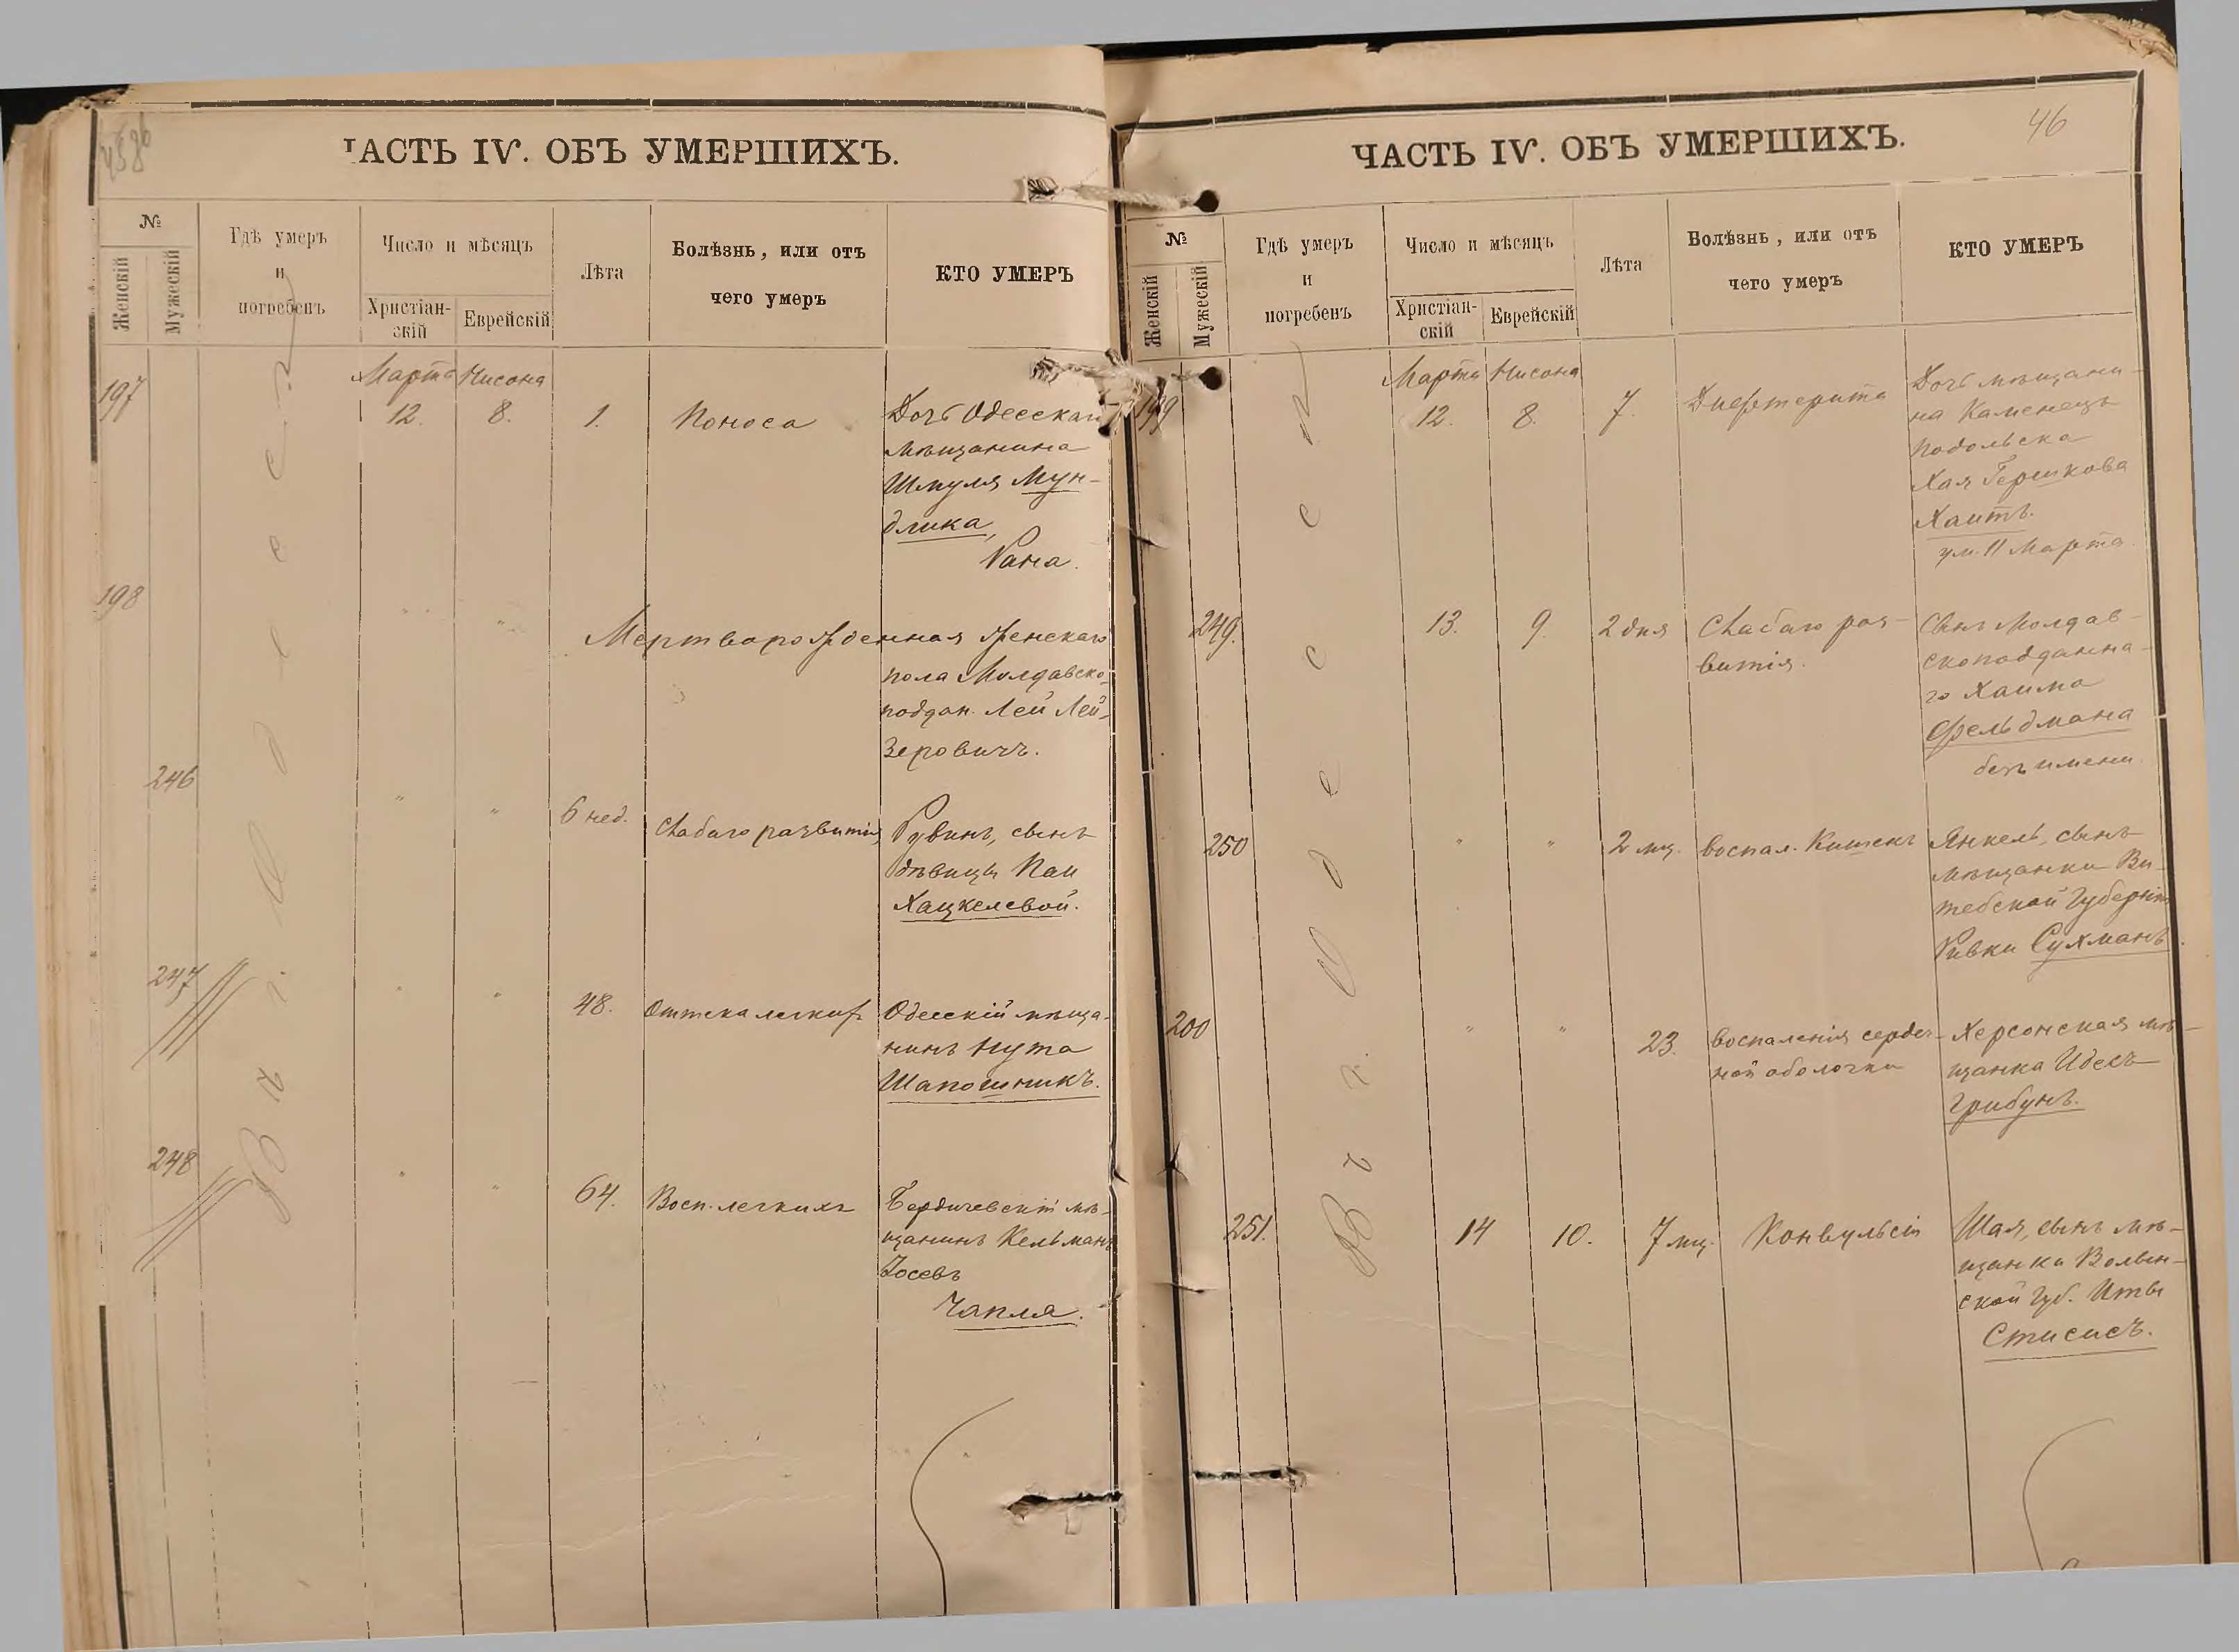 ЧАСТЬ IV. ОБЪ УМЕРШИХЪ.
№
Женскій
Мужескій
Гдѣ умеръ
и
погребенъ
Число и мѣсяцъ
Христіан-
скій
Еврейскій
Лѣта
Болѣзнь, или отъ
чего умеръ
КТО УМЕРЪ
Въ г. Одессѣ
197
Марта Нисона
12. 8. 1. Поноса
Дочь Одесскаго
мѣщанина
Шмуля Мун-
длика,
Рана.
198
" "
Мерторожденная женскаго
пола Молдавско-
поддан. Леи Лей-
зеровичъ.
246
" " 6 нед. Слабаго развитія
Рувинъ, сынъ
дѣвицы Паи
Хацкелевой.
247
" " 48. Оттека легкихъ
Одесскій мѣща-
нинъ Нута
Шапошникъ.
248
" " 64. Восп. легкихъ
Бердичевскій мѣ-
щанинъ Кельманъ
Іосевъ
Чапля.
46
ЧАСТЬ IV. ОБЪ УМЕРШИХЪ.
№
Женскій
Мужескій
Гдѣ умеръ
и
погребенъ
Число и мѣсяцъ
Христіан-
скій
Еврейскій
Лѣта
Болѣзнь, или отъ
чего умеръ
КТО УМЕРЪ
Въ г. Одессѣ
199
Марта Нисона
12. 8. 7. Дифтерита
Дочь мѣщани-
на Каменецъ
Подольска
Хая Гершкова
Хаитъ.
ум. 11 Марта.
249.
13. 9. 2 дня Слабаго раз-
витія.
Сынъ Молдав-
скоподданна-
го Хаима
Фельдмана
безъ имени
250
" " 2 мц. воспал. Кишекъ
Янкель, сынъ
мѣщанки Ви-
тебской Губерніи
Ривки Сухманъ.
200
" " 23. воспаленія сердеч-
ной оболочки
Херсонская мѣ-
щанка Идесъ
Грибунъ.
251.
14 10. 7 мц. Конвульсіи
Шая, сынъ мѣ-
щанки Волын-
ской Губ. Иты
Стисисъ.